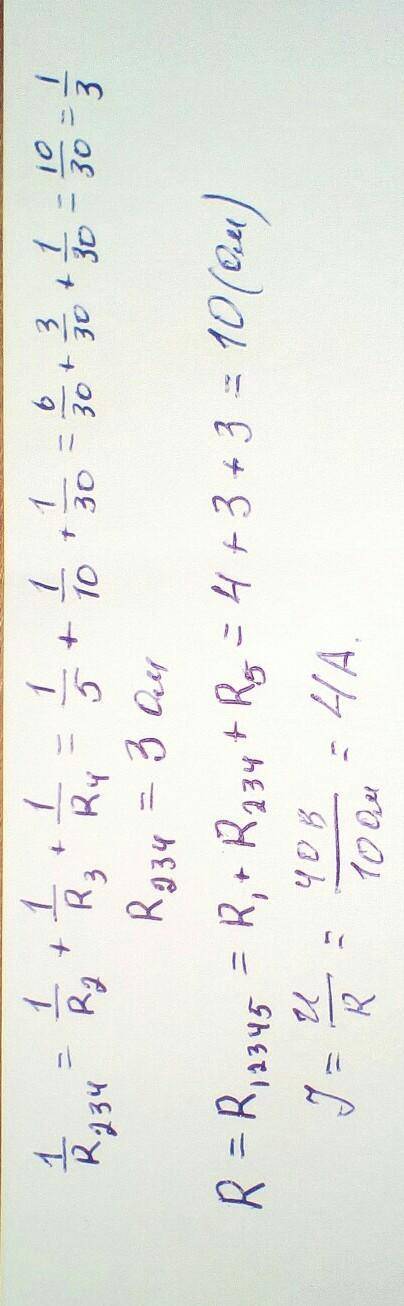 1/R₂₃₄ = 1/R₂ + 1/R₃ + 1/R₄ = 1/5 + 1/10 + 1/30 = 6/30 + 3/30 + 1/30 = 10/30 = 1/3
R₂₃₄ = 3 Ом
R = R₁₂₃₄₅ = R₁ + R₂₃₄ + R₅ = 4 + 3 + 3 = 10 (Ом)
J = U/R = 40В/10Ом = 4А.